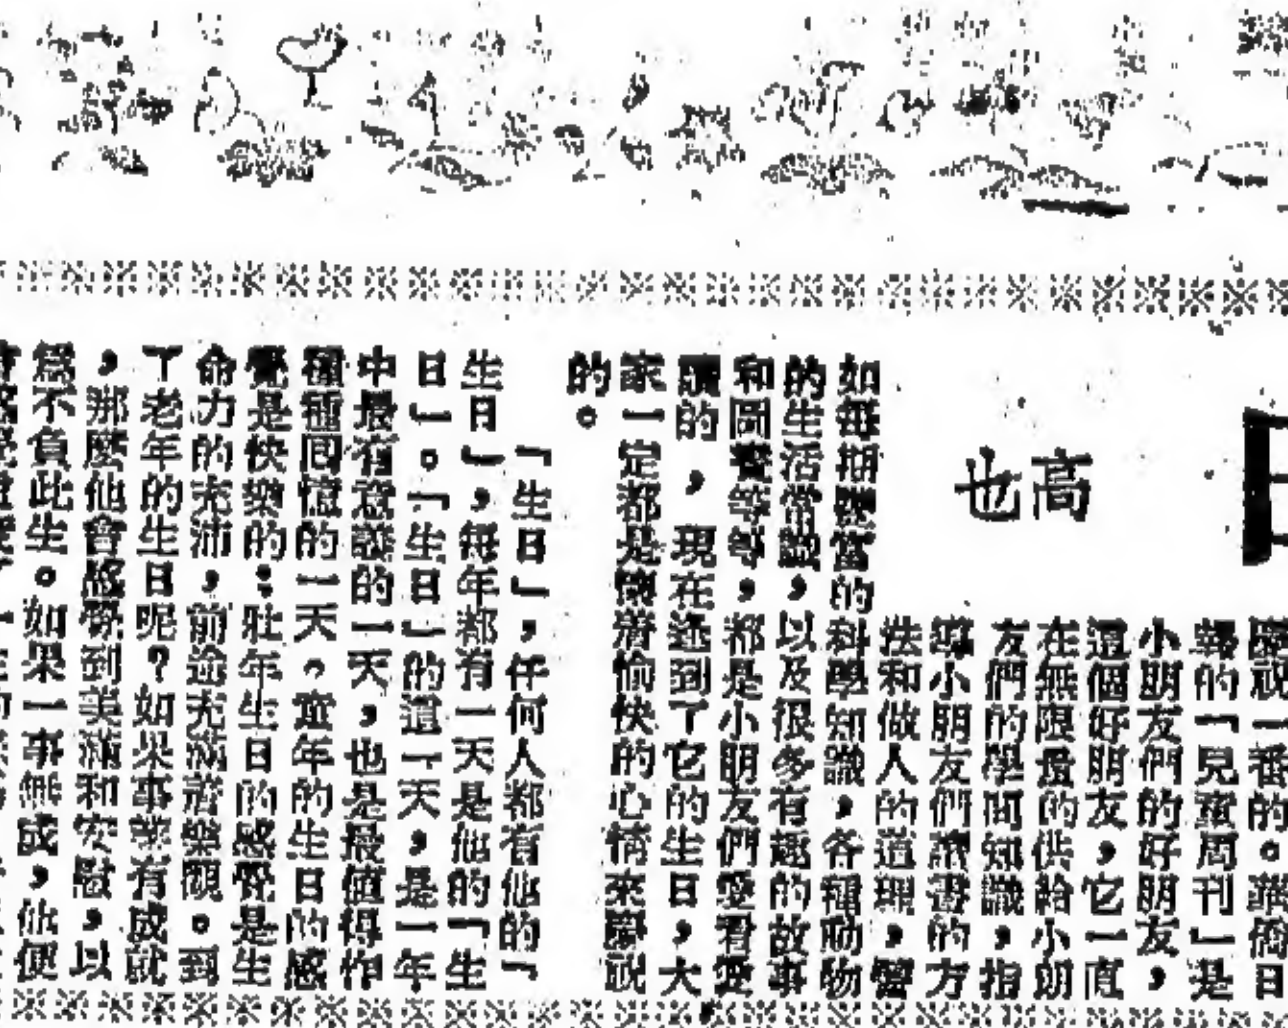 高也
慶祝一番的。華僑日
報的「兒童周刊」是
小朋友們的好朋友，
這個好朋友，它一直
在無限量的供給小朋
友們的學問知識，指
導小朋友們讀書的方
法和做人的道理，譬
如每期豐富的科學知識，各種動物
的生活常識，以及很多有趣的故事
和圖畫等等，都是小朋友們愛看愛
讀的，現在逢到了它的生日，大
家一定都是懷着愉快的心情來慶祝
的。
「生日」，任何人都有他的「
生日」，每年都有一天是他的「生
日」。「生日」的這一天，是一年
中最有意義的一天，也是最值得作
種種回憶的一天。童年的生日的感
覺是快樂的；壯年生日的感覺是生
命力的充沛，前途充滿着樂觀。到
了老年的生日呢？如果事業有成就
，那麼他會感覺到美滿和安慰，以
為不負此生。如果一事無成，他便